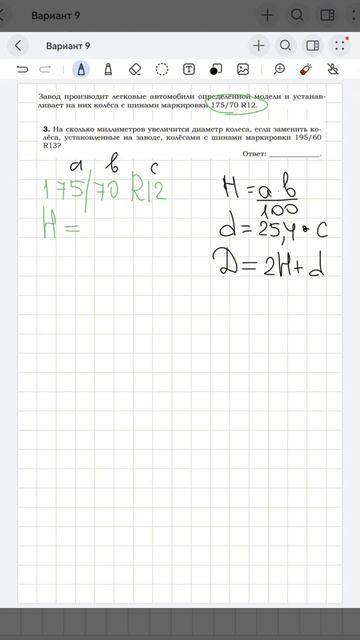 Вариант 9
Вариант 9
Завод производит легковые автомобили определенной модели и устанав-
ливает на них колёса с шинами маркировки 175/70 R12.
3. На сколько миллиметров увеличится диаметр колеса, если заменить ко-
лёса, установленные на заводе, колёсами с шинами маркировки 195/60
R13?
Ответ: ____________.
a b c
175/70 R12
H =
H = a·b
100
d = 25,4 · c
D = 2H + d